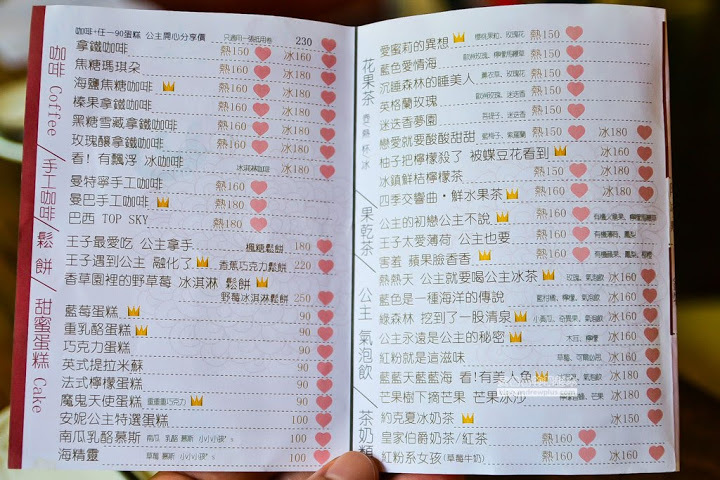 咖啡 Coffee / 手工咖啡 / 鬆餅 / 甜蜜蛋糕 Cake
咖啡+任一90蛋糕 公主開心分享價 只適用一張紙用卷 230
拿鐵咖啡 熱150 冰160
焦糖瑪琪朵 熱160 冰180
海鹽焦糖咖啡 熱160 冰180
榛果拿鐵咖啡 熱160 冰180
黑糖雪藏拿鐵咖啡 熱160 冰180
玫瑰釀拿鐵咖啡 熱160 冰180
看! 有飄浮 冰咖啡 冰淇淋咖啡 冰180
曼特寧手工咖啡 熱160
曼巴手工咖啡 熱180
巴西 TOP SKY 熱180
王子最愛吃 公主拿手 楓糖鬆餅 180
王子遇到公主 融化了 香蕉巧克力鬆餅 220
香草園裡的野草莓 冰淇淋 鬆餅
野莓冰淇淋鬆餅 250
藍莓蛋糕 90
重乳酪蛋糕 90
巧克力蛋糕 90
英式提拉米蘇 90
法式檸檬蛋糕 90
魔鬼天使蛋糕 重重重巧克力 90
安妮公主特選蛋糕 100
南瓜乳酪慕斯 南瓜 乳酪 慕斯 小小小孩's 100
海精靈 草莓 慕斯 小小小孩's 100
花果茶 壺 熱 杯 冰 / 果乾茶 / 公主 氣泡飲 / 茶奶類
愛蜜莉的異想 玫瑰花 熱150
藍色愛情海 熱150
沉睡森林的睡美人 薰衣草、玫瑰花 熱150
英格蘭玫瑰 歐洲玫瑰、迷迭香 熱150
迷迭香夢園 迷迭香 熱150
戀愛就要酸酸甜甜 紫羅蘭 熱150 冰180
柚子把檸檬殺了 被蝶豆花看到 冰180
冰鎮鮮桔檸檬茶 冰180
四季交響曲・鮮水果茶 熱160 冰180
公主的初戀公主不說 熱160
王子太愛薄荷 公主也要 熱160
害羞 蘋果臉香香 熱160
熱熱天 公主就要喝公主冰茶 玫瑰、氣泡飲 冰160
藍色是一種海洋的傳說 藍柑橘、檸檬、氣泡飲 冰160
綠森林 挖到了一股清泉 小黃瓜、奇異果、氣泡飲 冰160
公主永遠是公主的秘密 檸檬 冰160
紅粉就是這滋味 草莓、可爾必思 冰160
藍藍天藍藍海 看!有美人魚 氣泡飲 冰160
芒果樹下摘芒果 芒果冰沙 芒果 冰180
約克夏冰奶茶 冰150
皇家伯爵奶茶/紅茶 熱160
紅粉系女孩(草莓牛奶) 熱160 冰160